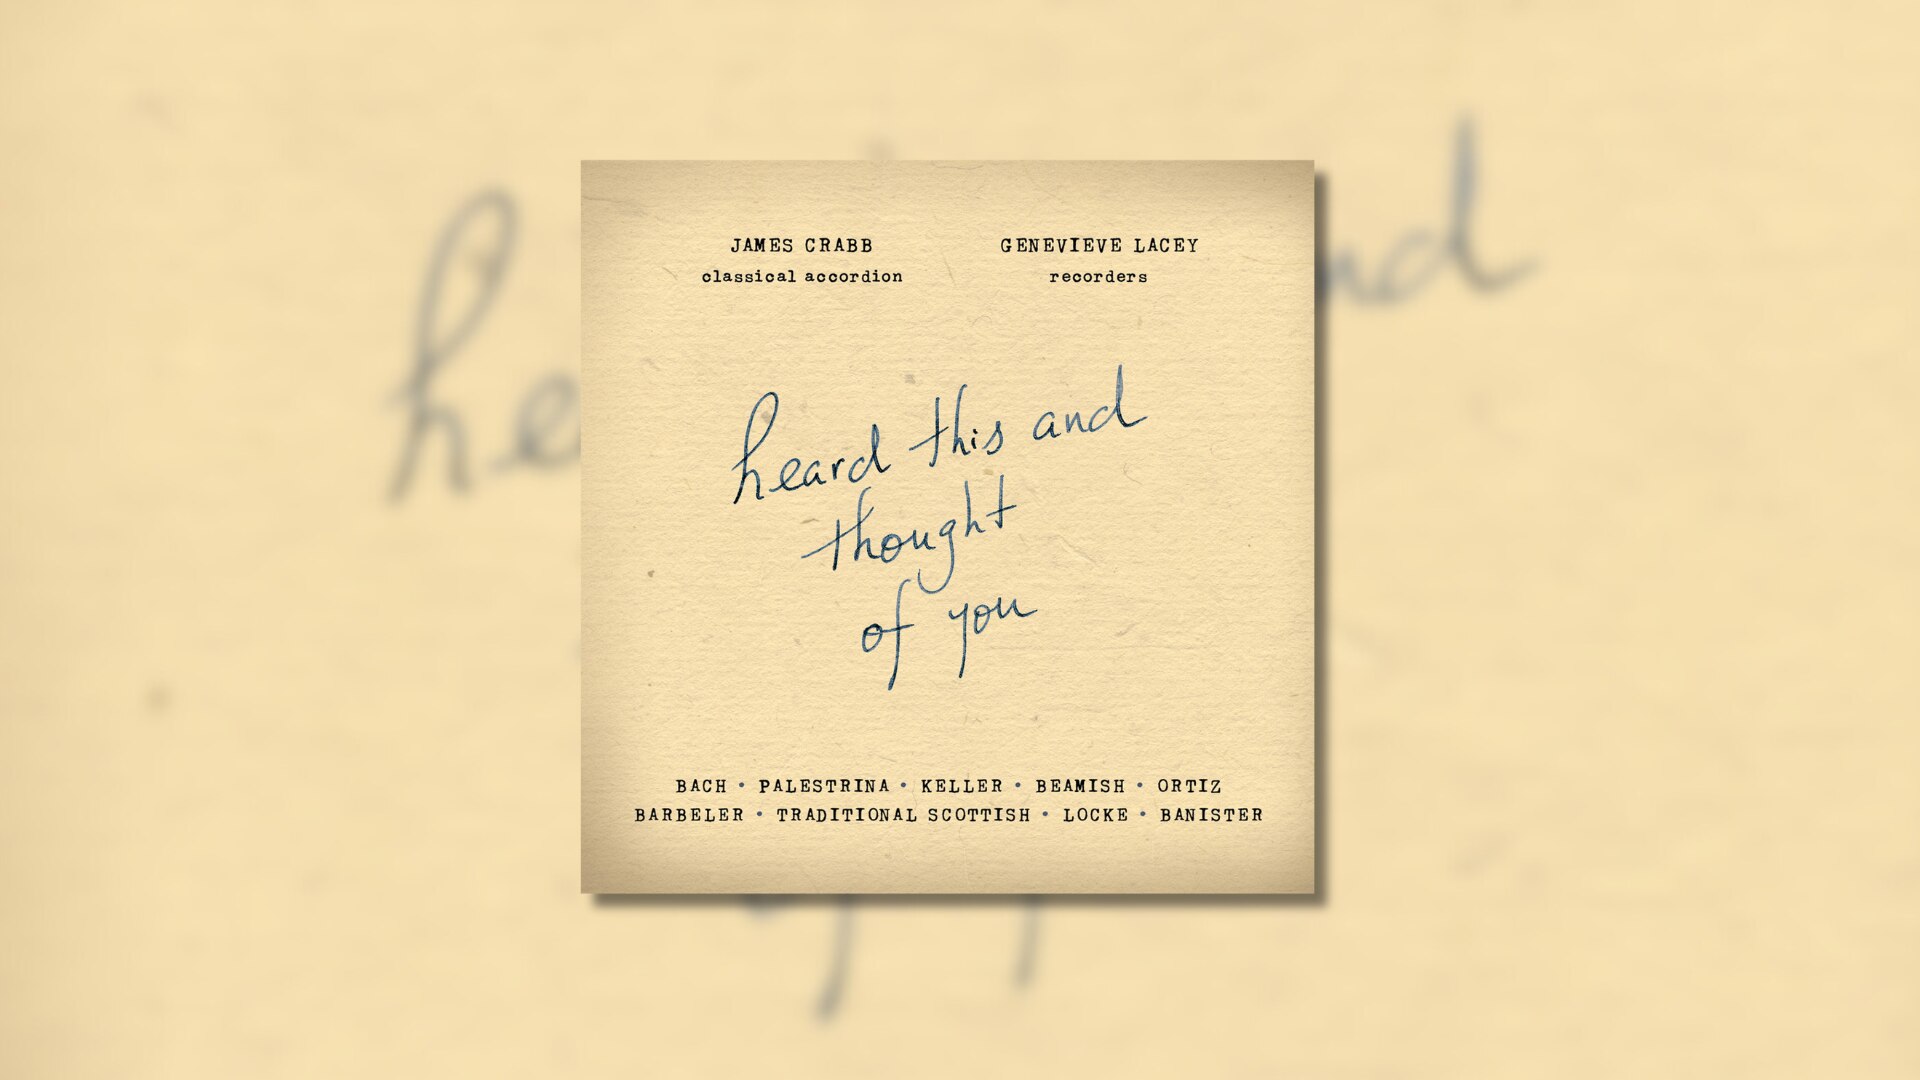 JAMES CRABB
classical accordion
GENEVIEVE LACEY
recorders
heard this and
thought
of you
BACH • PALESTRINA • KELLER • BEAMISH • ORTIZ
BARBELER • TRADITIONAL SCOTTISH • LOCKE • BANISTER